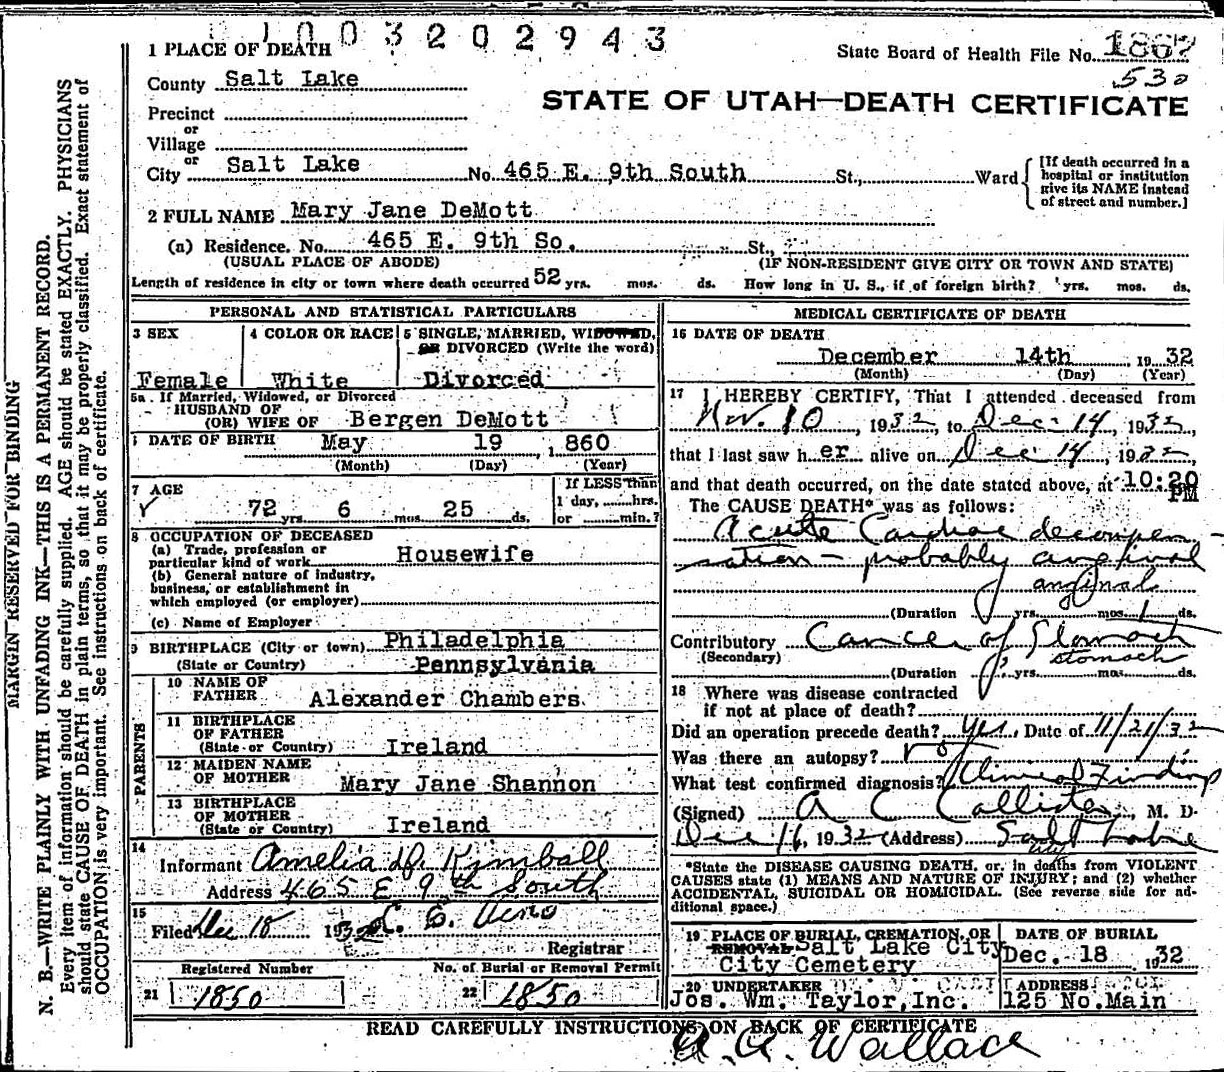 1003202943
1 PLACE OF DEATH
State Board of Health File No. 1867
530
County Salt Lake
STATE OF UTAH—DEATH CERTIFICATE
Precinct
or
Village
or
City Salt Lake No. 465 E. 9th South St., Ward
[If death occurred in a hospital or institution give its NAME instead of street and number.]
2 FULL NAME Mary Jane DeMott
(a) Residence. No. 465 E. 9th So. St.,
(USUAL PLACE OF ABODE) (IF NON-RESIDENT GIVE CITY OR TOWN AND STATE)
Length of residence in city or town where death occurred 52 yrs. mos. ds. How long in U. S., if of foreign birth? yrs. mos. ds.
PERSONAL AND STATISTICAL PARTICULARS
3 SEX
Female
4 COLOR OR RACE
White
5 SINGLE, MARRIED, WIDOWED,
OR DIVORCED (Write the word)
Divorced
5a. If Married, Widowed, or Divorced
HUSBAND OF
(OR) WIFE OF Bergen DeMott
DATE OF BIRTH May 19, 1860
(Month) (Day) (Year)
7 AGE
72 yrs. 6 mos. 25 ds.
If LESS than
1 day, ......hrs.
or ......min.?
8 OCCUPATION OF DECEASED
(a) Trade, profession or
particular kind of work Housewife
(b) General nature of industry,
business, or establishment in
which employed (or employer)
(c) Name of Employer
9 BIRTHPLACE (City or town) Philadelphia
(State or Country) Pennsylvania
PARENTS
10 NAME OF
FATHER Alexander Chambers
11 BIRTHPLACE
OF FATHER
(State or Country) Ireland
12 MAIDEN NAME
OF MOTHER Mary Jane Shannon
13 BIRTHPLACE
OF MOTHER
(State or Country) Ireland
14
Informant Amelia D. Kimball
Address 465 E 9th South
15
Filed Dec 18 1932
Registrar
Registered Number
21 1850
No. of Burial or Removal Permit
22 1850
MEDICAL CERTIFICATE OF DEATH
16 DATE OF DEATH
December 14th 1932
(Month) (Day) (Year)
17 I HEREBY CERTIFY, That I attended deceased from
Nov. 10, 1932, to Dec. 14, 1932,
that I last saw her alive on Dec 14, 1932,
and that death occurred, on the date stated above, at 10:20
PM
The CAUSE DEATH* was as follows:
Acute Cardiac decompen-
sation - probably anginal
anginal
(Duration yrs. mos. 1 ds.
Contributory Cancer of Stomach
(Secondary) stomach
(Duration ? yrs. mos. ds.
18 Where was disease contracted
if not at place of death?
Did an operation precede death? yes. Date of 11/21/32
Was there an autopsy? no
What test confirmed diagnosis? Clinical Findings
(Signed) A C Callister, M. D.
Dec 16, 1932 (Address) Salt Lake
City
*State the DISEASE CAUSING DEATH, or, in deaths from VIOLENT
CAUSES state (1) MEANS AND NATURE OF INJURY; and (2) whether
ACCIDENTAL, SUICIDAL OR HOMICIDAL. (See reverse side for ad-
ditional space.)
19 PLACE OF BURIAL, CREMATION, OR
REMOVAL Salt Lake City
City Cemetery
DATE OF BURIAL
Dec. 18 1932
20 UNDERTAKER
Jos. Wm. Taylor, Inc.
ADDRESS
125 No. Main
READ CAREFULLY INSTRUCTIONS ON BACK OF CERTIFICATE
A. A. Wallace
MARGIN RESERVED FOR BINDING
N. B.—WRITE PLAINLY WITH UNFADING INK—THIS IS A PERMANENT RECORD.
Every item of information should be carefully supplied. AGE should be stated EXACTLY. PHYSICIANS
should state CAUSE OF DEATH in plain terms, so that it may be properly classified. Exact statement of
OCCUPATION is very important. See instructions on back of certificate.